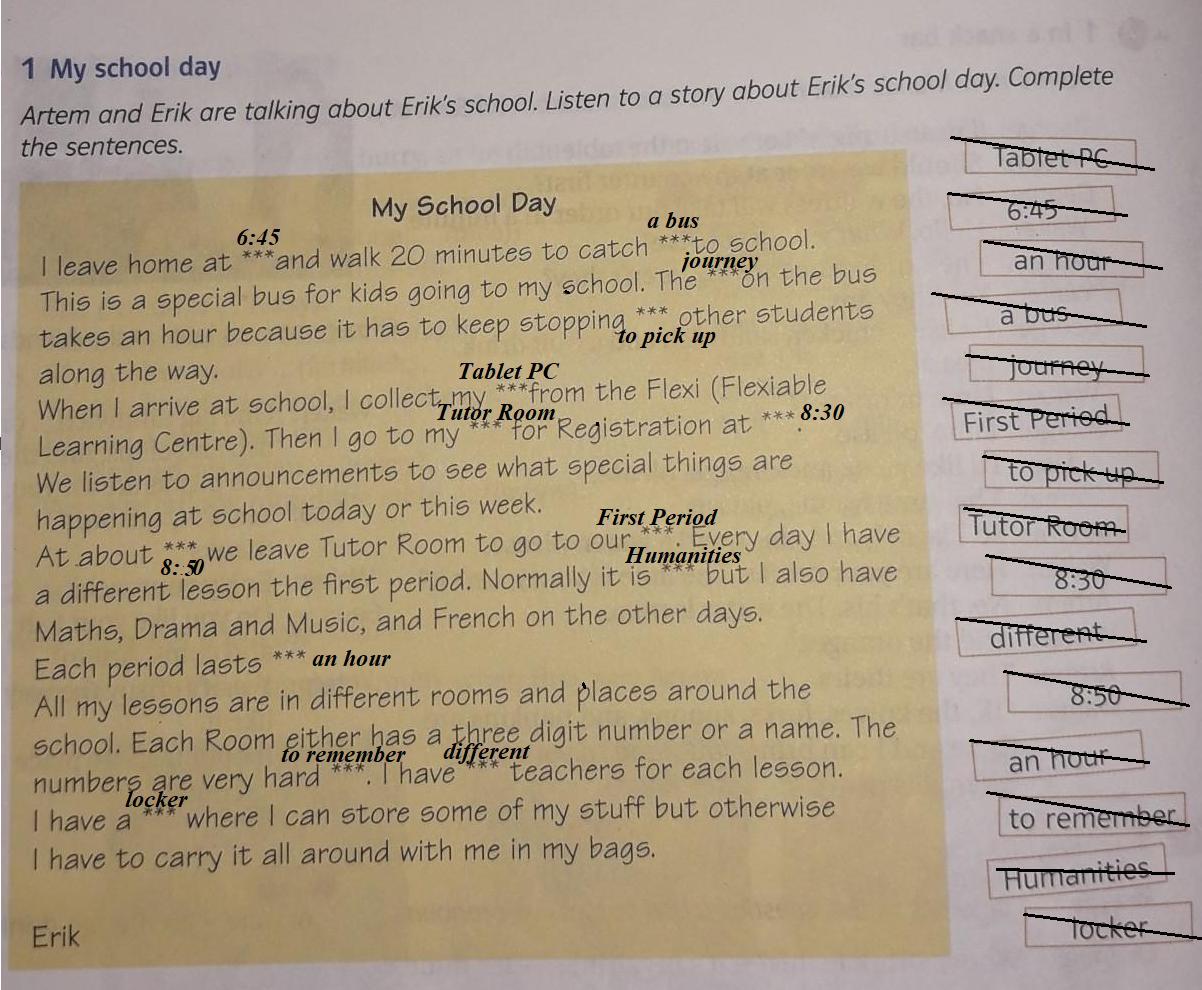 1 My school day
Artem and Erik are talking about Erik's school. Listen to a story about Erik's school day. Complete
the sentences.
My School Day
6:45
a bus
I leave home at *** and walk 20 minutes to catch *** to school.
journey
This is a special bus for kids going to my school. The *** on the bus
takes an hour because it has to keep stopping *** other students
to pick up
along the way.
Tablet PC
When I arrive at school, I collect my *** from the Flexi (Flexiable
Tutor Room
Learning Centre). Then I go to my *** for Registration at ***. 8:30
We listen to announcements to see what special things are
happening at school today or this week.
First Period
At about *** we leave Tutor Room to go to our ***. Every day I have
8:50
Humanities
a different lesson the first period. Normally it is *** but I also have
Maths, Drama and Music, and French on the other days.
Each period lasts *** an hour
All my lessons are in different rooms and places around the
school. Each Room either has a three digit number or a name. The
to remember
different
numbers are very hard ***. I have *** teachers for each lesson.
locker
I have a *** where I can store some of my stuff but otherwise
I have to carry it all around with me in my bags.
Erik
Tablet PC
6:45
an hour
a bus
journey
First Period
to pick up
Tutor Room
8:30
different
8:50
an hour
to remember
Humanities
locker